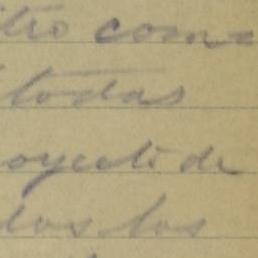 itro come
todas
oyecto de
dos los